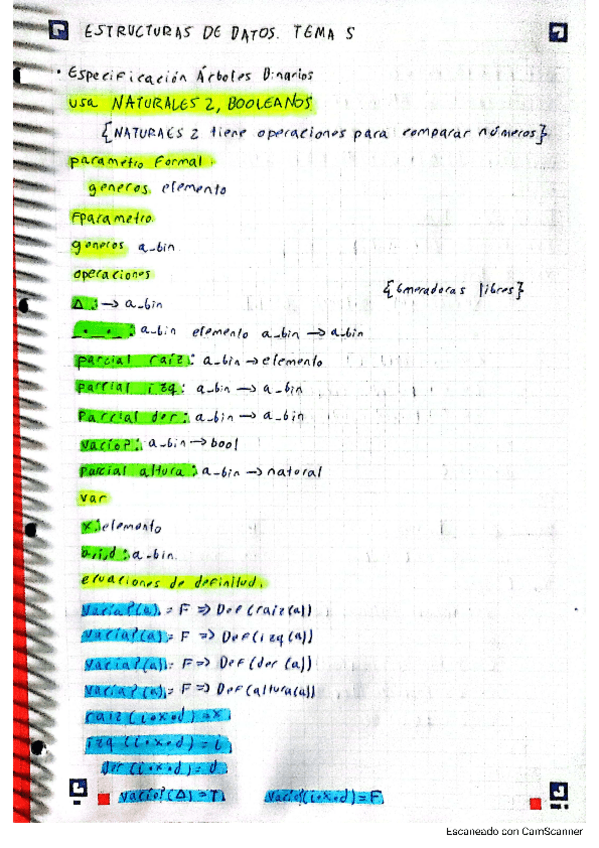 ESTRUCTURAS DE DATOS. TEMA 5
• Especificación Árboles Binarios
usa NATURALES 2, BOOLEANOS
{NATURAES 2 tiene operaciones para comparar números}
parametro Formal.
generos elemento
Fparametro
generos a_bin
operaciones
{Gmeradoras libres}
Δ: → a_bin
_•_•_: a_bin elemento a_bin → a_bin
parcial raiz: a_bin → elemento
parcial izq: a_bin → a_bin
Parcial der: a_bin → a_bin
vacio?: a_bin → bool
parcial altura: a_bin → natural
var
x: elemento
a,i,d: a_bin
ecuaciones de definitud.
vacia?(a) = F => Def(raiz(a))
vacia?(a) = F => Def(izq(a))
vacia?(a) = F => Def(der(a))
vacia?(a) = F => Def(altura(a))
raiz(i•x•d) = x
izq(i•x•d) = i
der(i•x•d) = d
vacio?(Δ) = T vacio?(i•x•d) = F
Escaneado con CamScanner